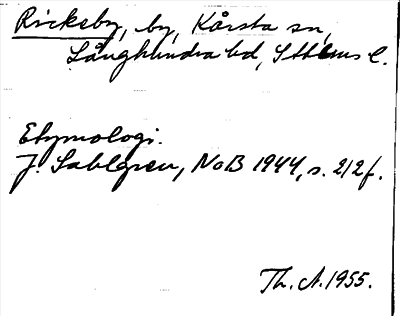 Rickeby, by, Kårsta sn,
Långhundra hd, Sthlms l.
Etymologi.
J. Sahlgren, NoB 1944, s. 212f.
Th. A. 1955.